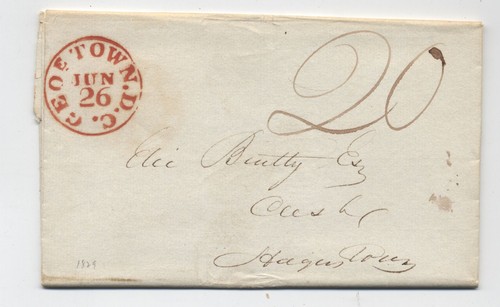 GEOETOWN. D.C.
JUN
26
20
Elie Beatty Esq
Cash
Hagerstown
1829